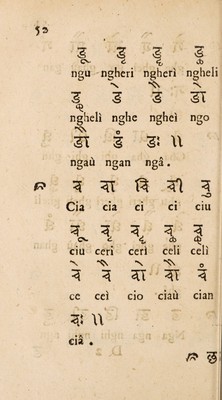 ङू ङृ ङॄ ङॢ
ngu ngheri ngherì ngheli
ङॣ ङे ङै ङो
nghelì nghe ngheì ngo
ङौ ङं ङः ॥
ngaù ngan ngâ.
च चा चि ची चु
Cia cia ci ci ciu
चू चृ चॄ चॢ चॣ
ciu ceri cerì celi celì
चे चै चो चौ चं
ce ceì cio ciaù cian
चः ॥
ciâ.
छ